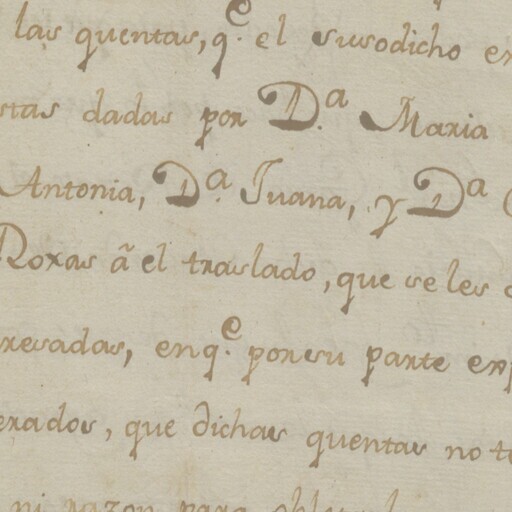 las quentas, q.e el susodicho ex
stas dadas por D.a Maria
Antonia, D.a Juana, y D.a
Roxas â el traslado, que se les
resadas, en q.e por su parte exp
erados, que dichas quentas no t
ni razon para